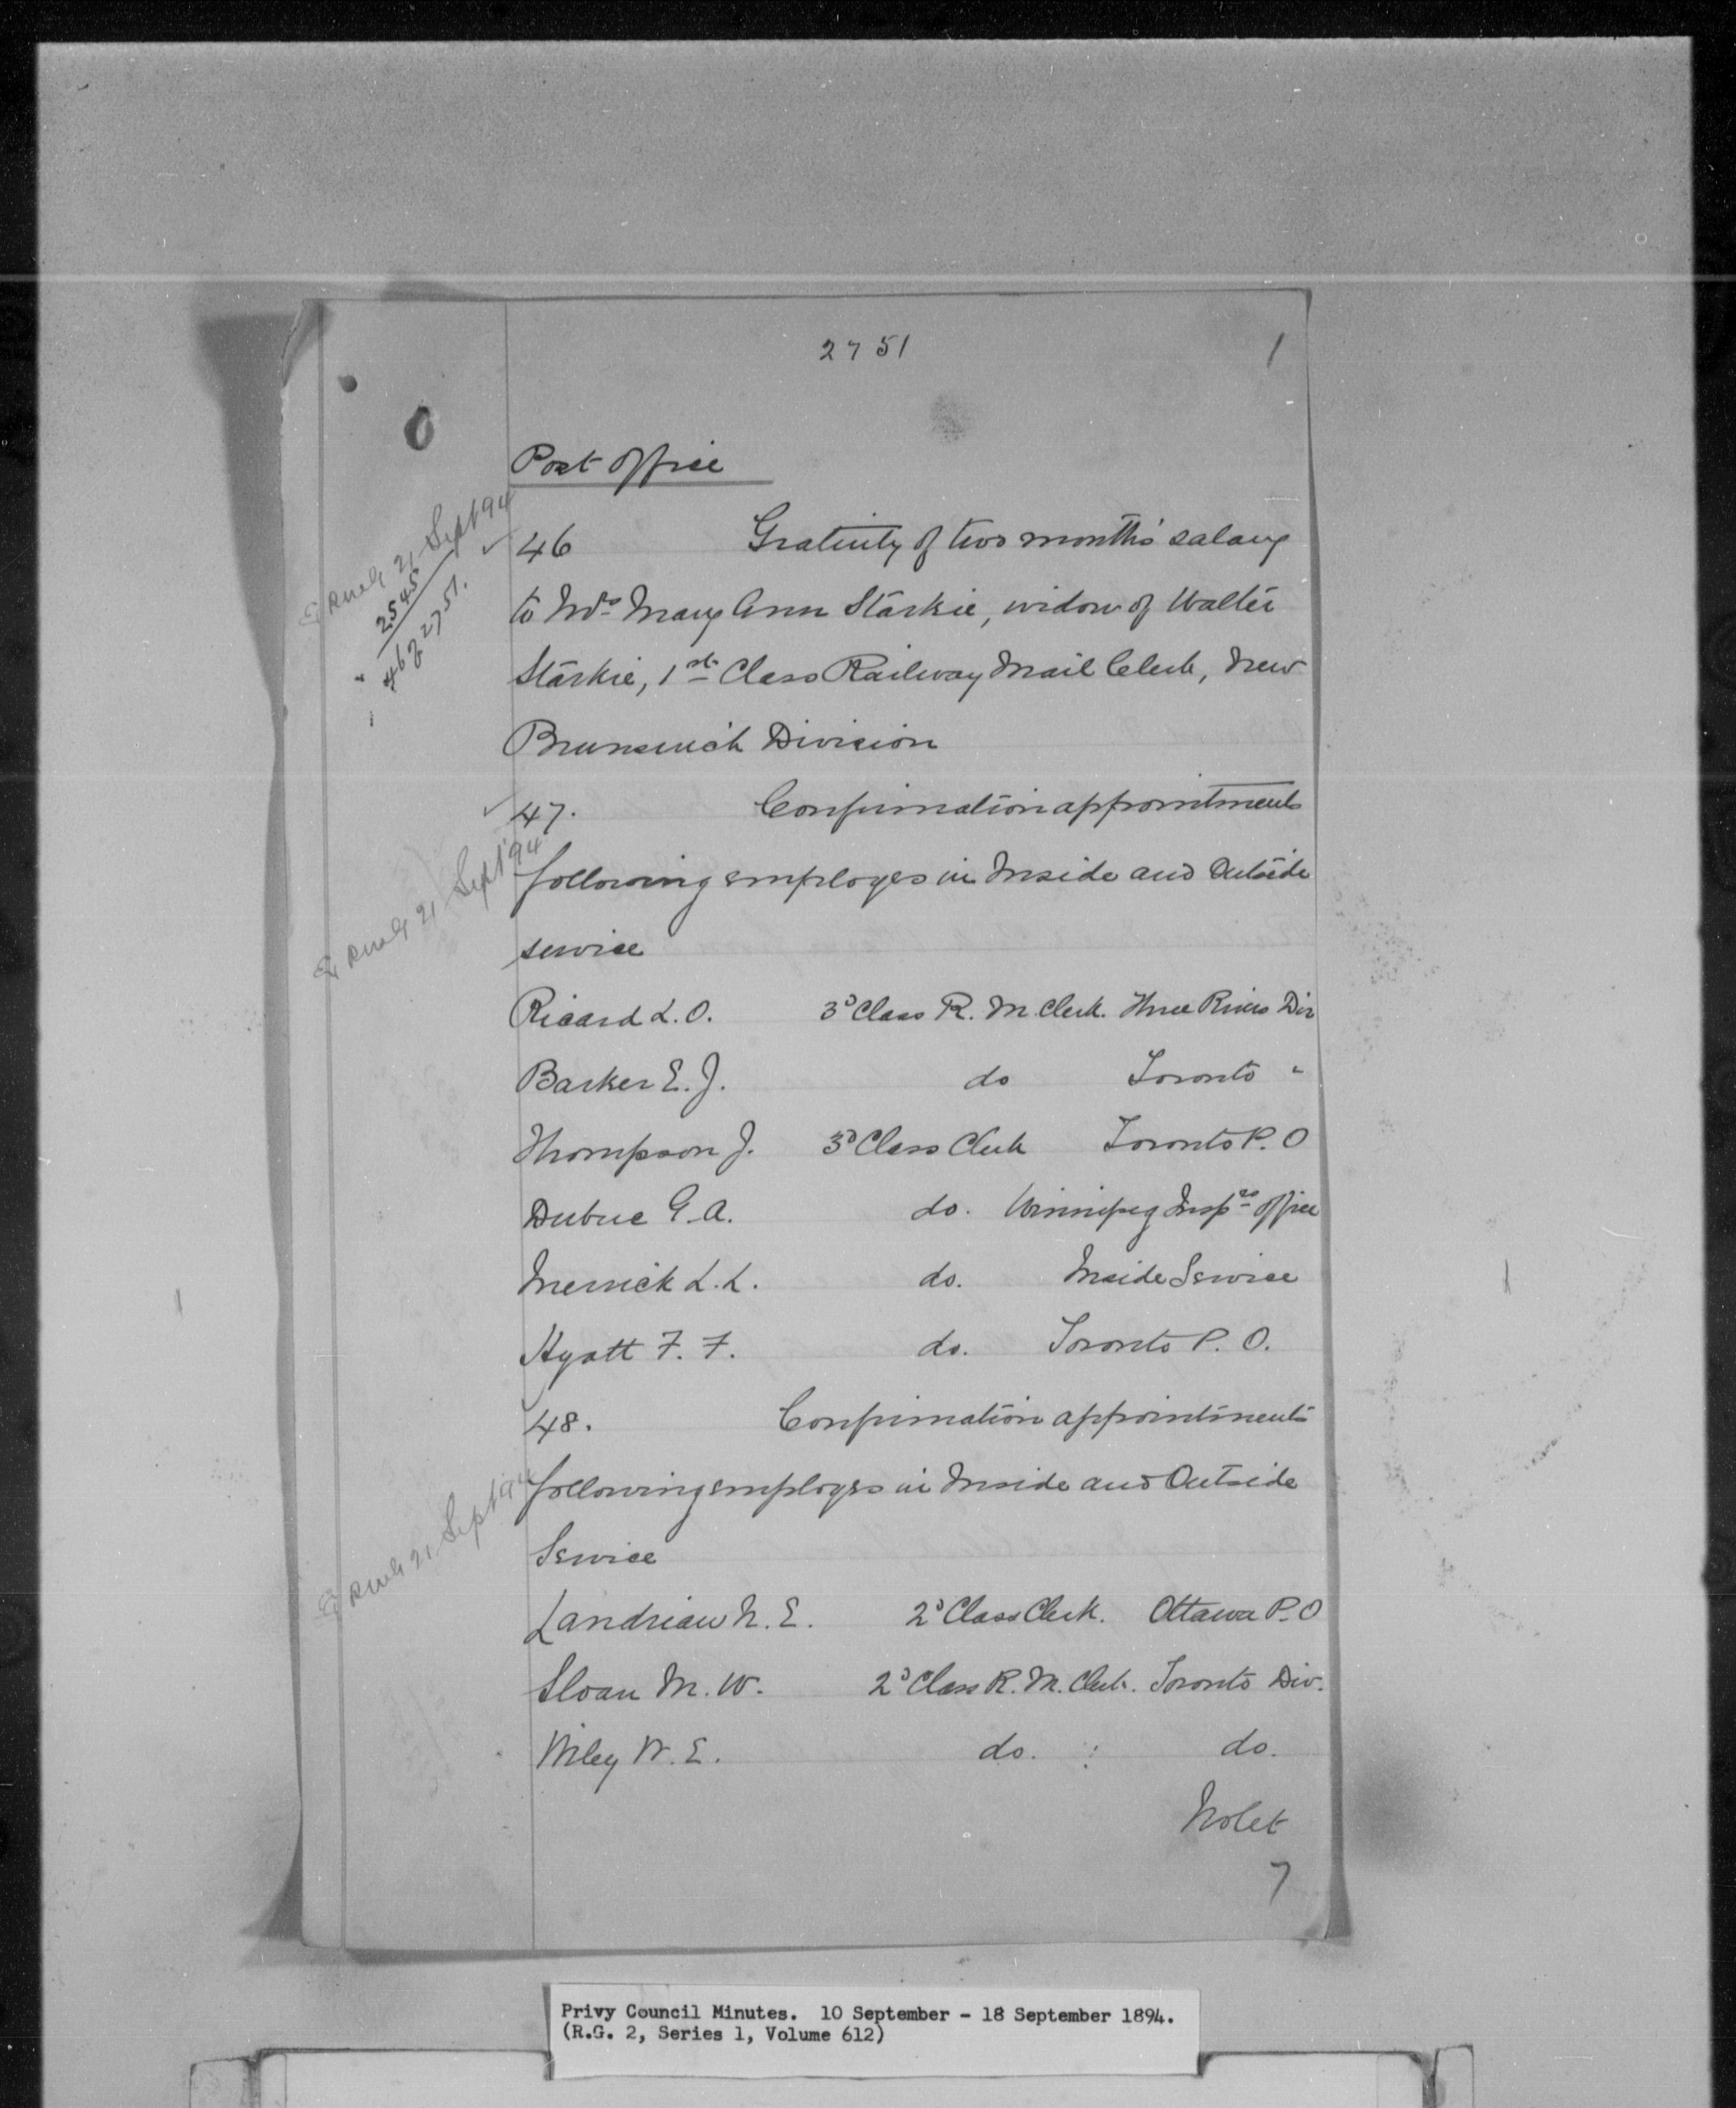 2751
1
Post Office
21 Sept 94
2545
2751.
46 Gratuity of two months' salary
to Mrs Mary Ann Starkie, widow of Walter
Starkie, 1st Class Railway Mail Clerk, New
Brunswick Division
47. Confirmation appointments
21 Sept 94
following employes in Inside and Outside
service
Ricard L. O. 3d Class R. M. Clerk. Three Rivers Div
Barker E. J. do Toronto "
Thompson J. 3d Class Clerk Toronto P. O
Dubuc G. A. do. Winnipeg Insprs office
Merrick L. L. do. Inside Service
Hyatt F. F. do. Toronto P. O.
48. Confirmation appointments
21 Sept 9
following employes in Inside and Outside
Service
Landriau N. E. 2d Class Clerk. Ottawa P. O
Sloan M. W. 2d Class R. M. Clerk. Toronto Div.
Wiley W. E. do. do.
Nolet
7
Privy Council Minutes. 10 September - 18 September 1894.
(R.G. 2, Series 1, Volume 612)